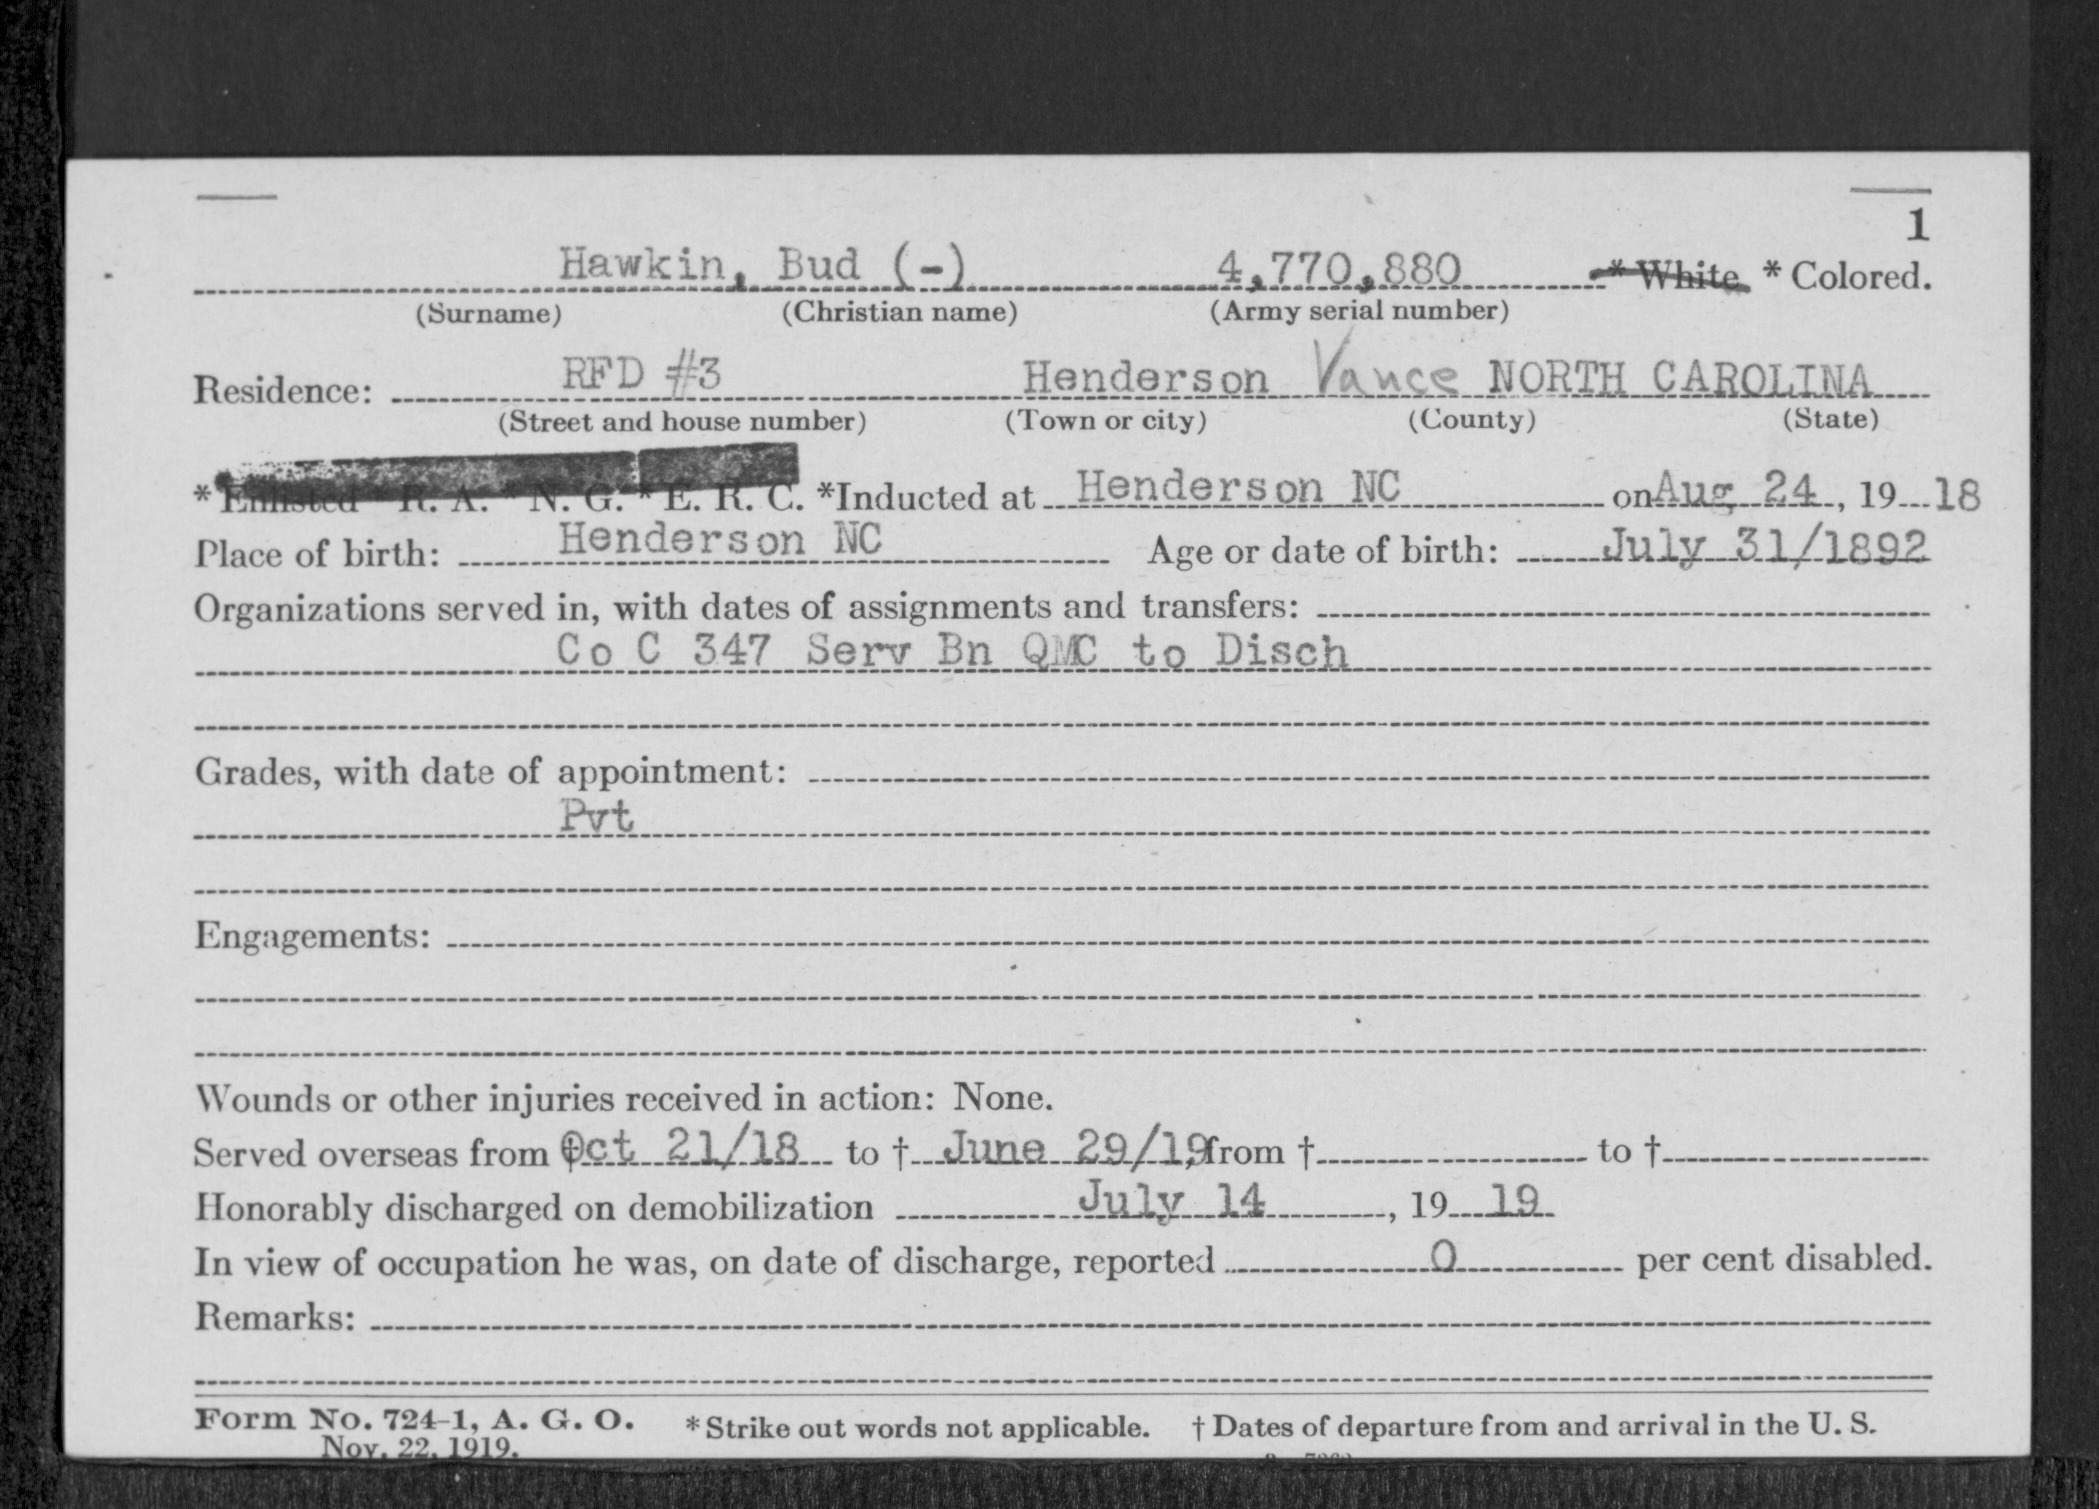 1
Hawkin, Bud (-) 4,770,880 * White * Colored.
(Surname) (Christian name) (Army serial number)
Residence: RFD #3 Henderson Vance NORTH CAROLINA
(Street and house number) (Town or city) (County) (State)
* Enlisted * R. A. * N. G. * E. R. C. *Inducted at Henderson NC on Aug 24, 1918
Place of birth: Henderson NC Age or date of birth: July 31/1892
Organizations served in, with dates of assignments and transfers:
Co C 347 Serv Bn QMC to Disch
Grades, with date of appointment:
Pvt
Engagements:
Wounds or other injuries received in action: None.
Served overseas from † Oct 21/18 to † June 29/19, from † to †
Honorably discharged on demobilization July 14, 19 19
In view of occupation he was, on date of discharge, reported 0 per cent disabled.
Remarks:
Form No. 724-1, A. G. O. * Strike out words not applicable. † Dates of departure from and arrival in the U. S.
Nov. 22, 1919.